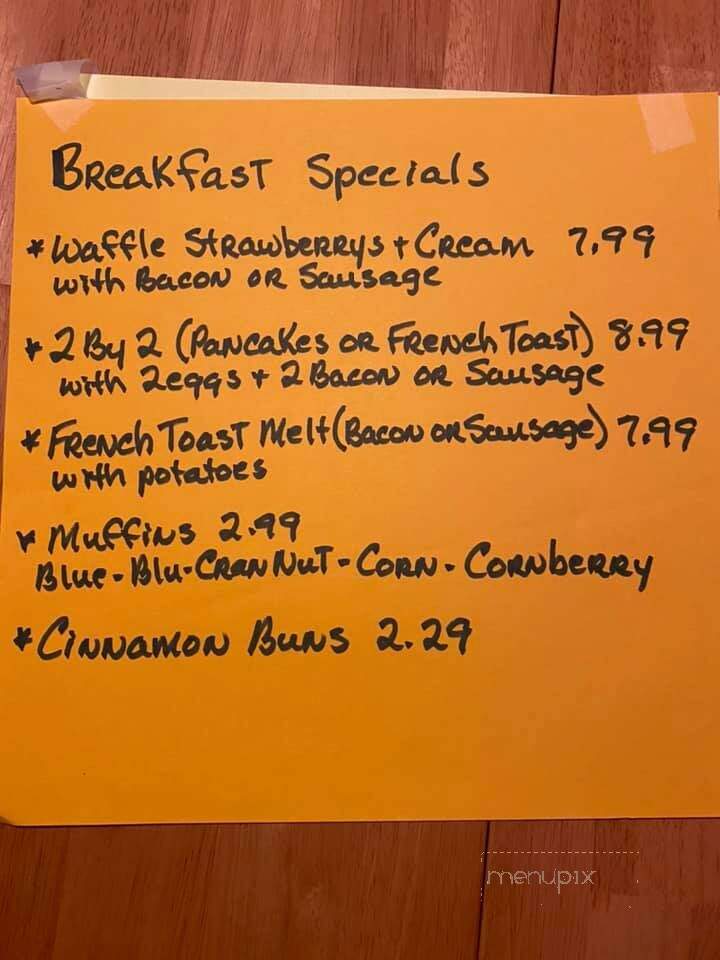 Breakfast Specials
* Waffle Strawberrys + Cream 7.99
with Bacon or Sausage
* 2 By 2 (Pancakes or French Toast) 8.99
with 2eggs + 2 Bacon or Sausage
* French Toast Melt (Bacon or Sausage) 7.99
with potatoes
* Muffins 2.99
Blue - Blu-Cran Nut - Corn - Cornberry
* Cinnamon Buns 2.29
menupix